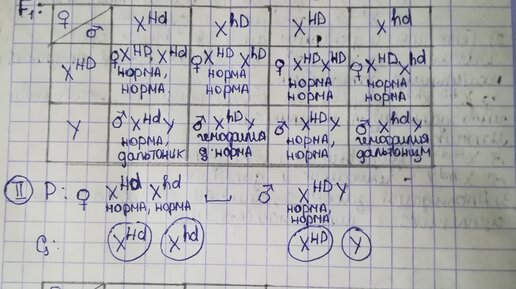 F₁: ♀ ♂ X^Hd X^hD X^HD X^hd
X^HD ♀X^HD, X^Hd ♀X^HD X^hD ♀ X^HD X^HD ♀ X^HD X^hd
норма, норма норма норма
норма. норма норма норма
Y ♂ X^Hd Y ♂ X^hD Y ♂ X^HD Y ♂ X^hd Y
норма, гемофилия норма, гемофилия
дальтоник д. норма норма дальтонизм
II P: ♀ X^Hd X^hd ♂ X^HD Y
норма, норма норма,
норма
G: X^Hd X^hd X^HD Y